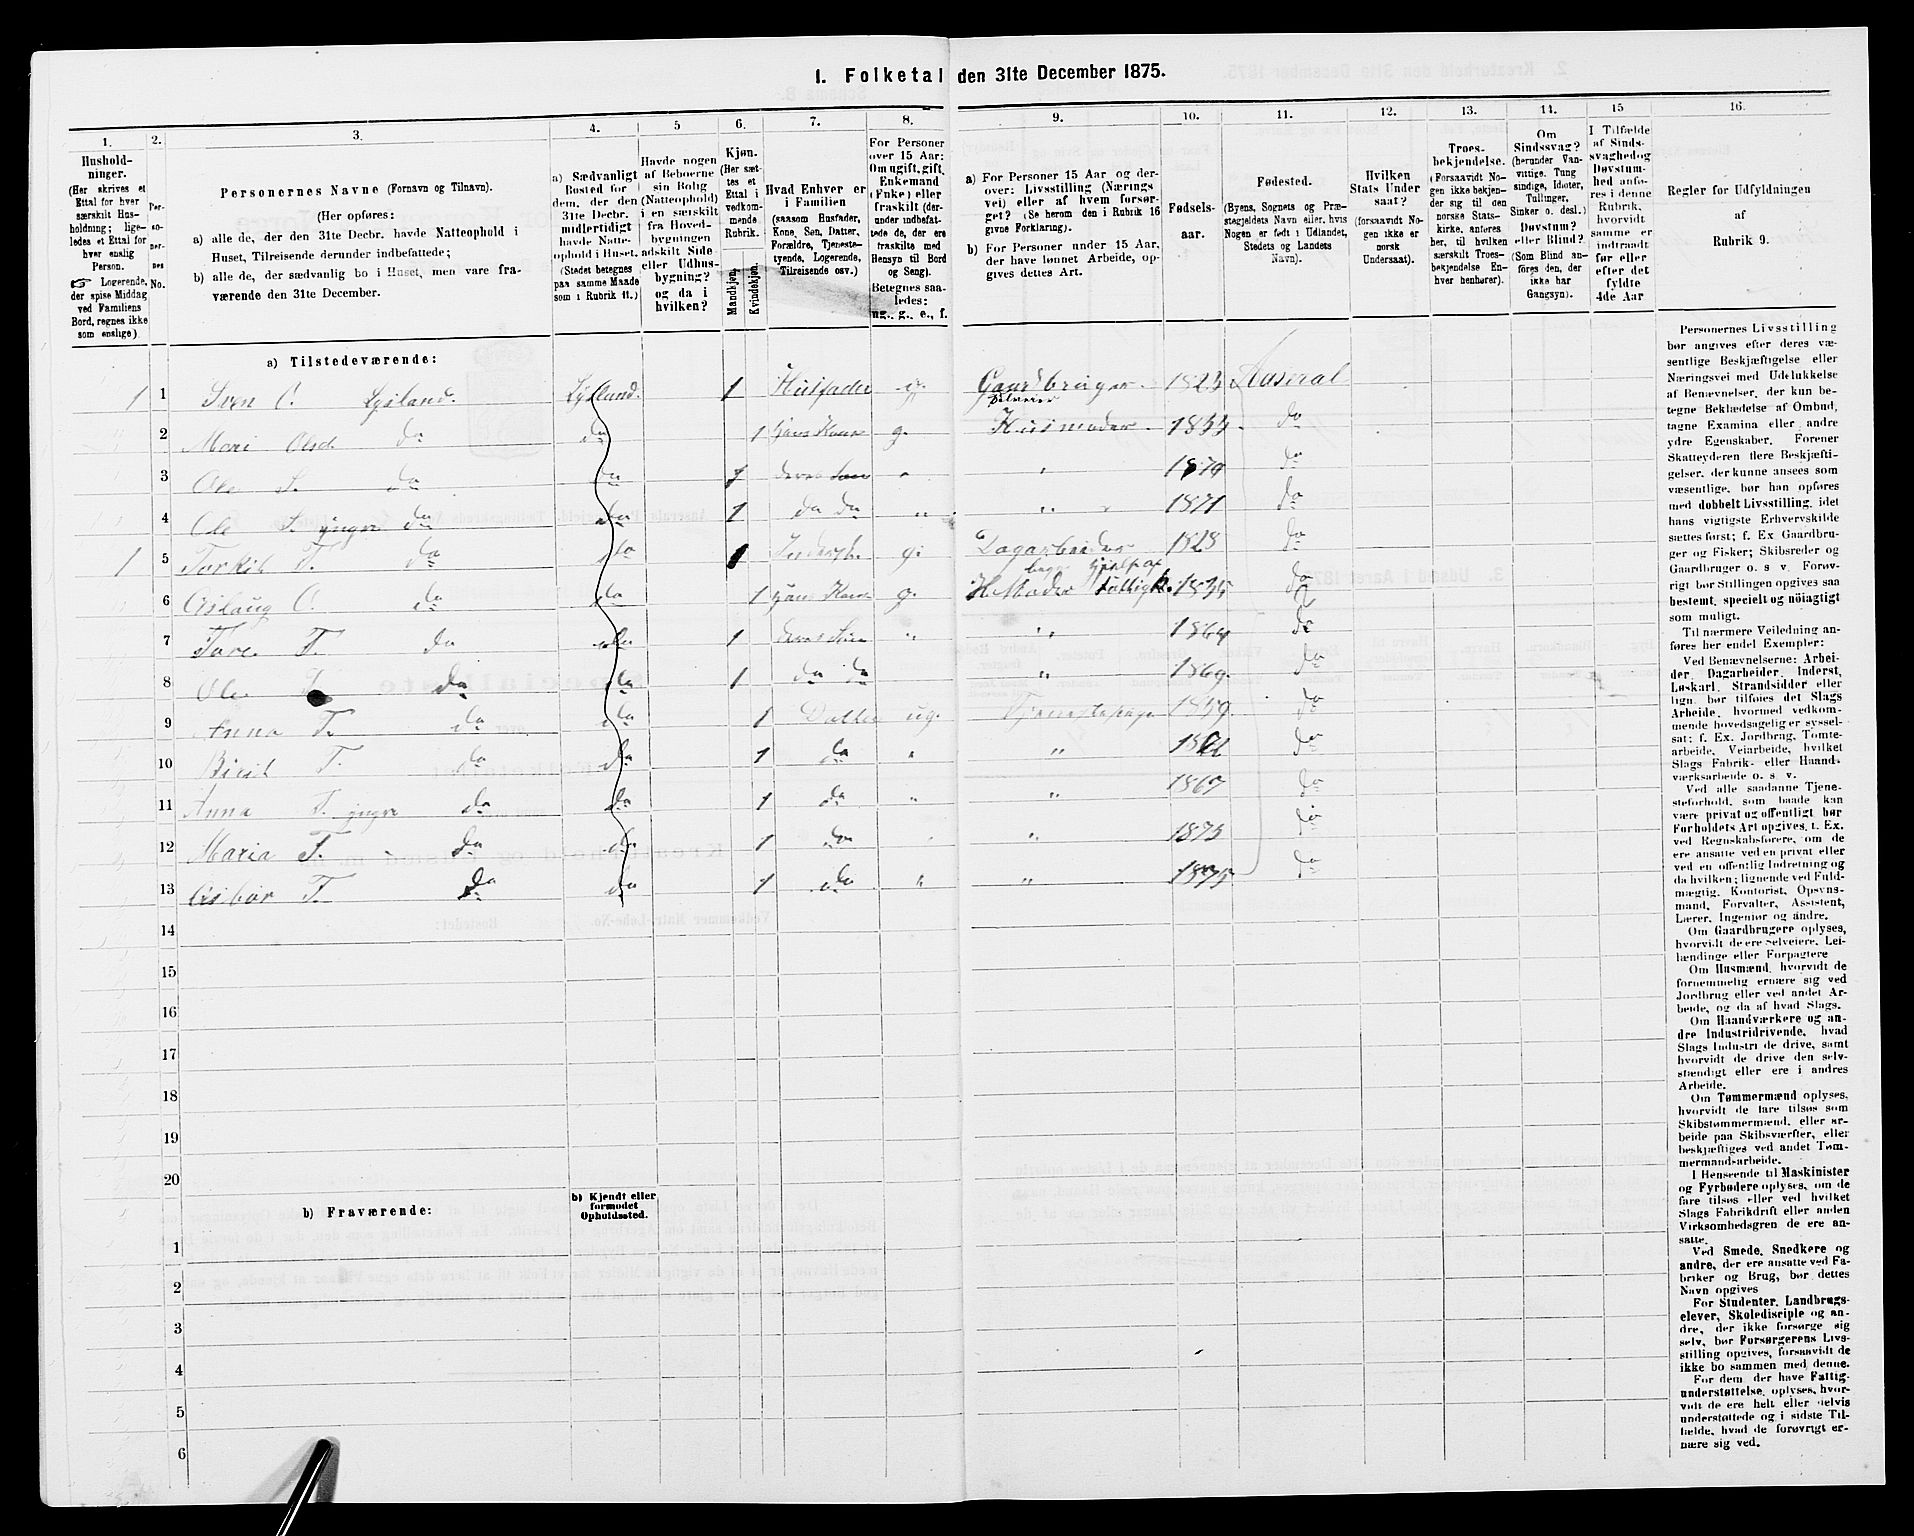 1. Folketal den 31te December 1875.
1. 2. 3. 4. 5 6. 7. 8. 9. 10. 11. 12. 13. 14. 15 16.
Hushold-
ninger.
(Her skrives et
Ettal for hver
særskilt Hus-
holdning; lige-
ledes et Ettal for
hver enslig
Person.
☞ Logerende,
der spise Middag
ved Familiens
Bord, regnes ikke
som enslige.)
Per-
so-
ner-
nes
No.
Personernes Navne (Fornavn og Tilnavn).
(Her opføres:
a) alle de, der den 31te Decbr. havde Natteophold i
Huset, Tilreisende derunder indbefattede;
b) alle de, der sædvanlig bo i Huset, men vare fra-
værende den 31te December.
a) Sædvanligt
Bosted for
dem, der den
31te Decbr.
midlertidigt
havde Natte-
ophold i Huset.
(Stedet betegnes
paa samme Maade
som i Rubrik 11.)
Havde nogen
af Beboerne
sin Bolig
(Natteophold)
i en særskilt
fra Hoved-
bygningen
adskilt Side-
eller Udhus-
bygning?
og da i
hvilken?
Kjøn.
(Her sæt-
tes et
Ettal i
vedkom-
mende
Rubrik.
Mandkjøn.
Kvindekjøn.
Hvad Enhver er
i Familien
(saasom Husfader,
Kone, Søn, Datter,
Forældre, Tjeneste-
tyende, Logerende,
Tilreisende osv.)
For Personer
over 15 Aar:
Om ugift, gift,
Enkemand
(Enke) eller
fraskilt (der-
under indbefat-
tede de, der ere
fraskilte med
Hensyn til Bord
og Seng).
Betegnes saa-
ledes:
ug., g., e., f.
a) For Personer 15 Aar og der-
over: Livsstilling (Nærings
vei) eller af hvem forsør-
get? (Se herom den i Rubrik 16
givne Forklaring).
b) For Personer under 15 Aar,
der have lønnet Arbeide, op-
gives dettes Art.
Fødsels-
aar.
Fødested.
(Byens, Sognets og Præ-
stegjeldets Navn eller, hvis
Nogen er født i Udlandet,
Stedets og Landets
Navn).
Hvilken
Stats Under
saat?
(forsaavidt No-
gen ikke er
norsk
Undersaat).
Troes-
bekjendelse.
(Forsaavidt No-
gen ikke bekjen-
der sig til den
norske Stats-
kirke, anføres
her, til hvilken
særskilt Troes-
bekjendelse En-
hver henhører).
Om
Sindssvag?
(herunder Van-
vittige, Tung
sindige, Idioter,
Tullinger,
Sinker o. desl.)
Døvstum?
eller Blind?
(Som Blind an-
føres den, der
ikke har
Gangsyn).
I Tilfælde
af Sinds-
svaghed og
Døvstum-
hed anfø-
res i denne
Rubrik,
hvorvidt
samme er
indtraadt
før eller
efter det
fyldte
4de Aar
Regler for Udfyldningen
af
Rubrik 9.
a) Tilstedeværende:
1 1 Sven O. Lysland. Lysland. 1 Husfader g. Gaardbruger Selveier 1823 Aaseral
2 Mari Olsd do do 1 hans Kone g. Husmoder 1833 do
3 Ole S. do do 1 deres Søn " 1870 do
4 Ole S. yngre do do 1 do do " " 1871 do
1 5 Torkil T. do do 1 g. Dagarbeider 1828 do
6 Aslaug O. do do 1 hans Kone g. 1835 do
7 Tore T. do do 1 deres Søn " " 1864 do
8 Ole T. do do 1 do do " 1869 do
9 Anna T. do do 1 Datter ug. 1859 do
10 Birit T. do do 1 do " " do
11 Anna T. yngre do do 1 do " " 1867 do
12 Maria T. do do 1 do " 1873 do
13 T. do do 1 do " " 1875 do
14
15
16
17
18
19
20
b) Fraværende:
b) Kjendt eller
formodet
Opholdssted.
1
2
3
4
5
6
Personernes Livsstilling
bør angives efter deres væ-
sentlige Beskjæftigelse eller
Næringsvei med Udelukkelse
af Benævnelser, der kun be-
tegne Beklædelse af Ombud,
tagne Examina eller andre
ydre Egenskaber. Forener
Skatteyderen flere Beskjæfti-
gelser, der kunne ansees som
væsentlige, bør han opføres
med dobbelt Livsstilling, idet
hans vigtigste Erhvervskilde
sættes først; f. Ex Gaardbru-
ger og Fisker; Skibsreder og
Gaardbruger o. s. v. Forøv-
rigt bør Stillingen opgives saa
bestemt, specielt og nöiagtigt
som muligt.
Til nærmere Veiledning an-
føres her endel Exempler:
Ved Benævnelserne: Arbei-
der, Dagarbeider, Inderst,
Løskarl, Strandsidder eller
lign. bør tilføies det Slags
Arbeide, hvormed vedkom-
mende hovedsagelig er syssel-
sat; f. Ex. Jordbrug, Tomte-
arbeide, Veiarbeide, hvilket
Slags Fabrik- eller Haand-
værksarbeide o. s. v.
Ved alle saadanne Tjene-
steforhold, som baade kan
være privat og offentligt bør
Forholdets Art opgives, t. Ex.
ved Regnskabsførere, om de
ere ansatte ved en privat eller
ved en offentlig Indretning og
da hvilken; lignende ved Fuld-
mægtig, Kontorist, Opsyns-
mand, Forvalter, Assistent,
Lærer, Ingeniør og andre.
Om Gaardbrugere oplyses,
hvorvidt de ere Selveiere, Lei-
lændinge eller Forpagtere
Om Husmænd, hvorvidt de
fornemmelig ernære sig ved
Jordbrug eller ved andet Ar-
beide, og da af hvad Slags.
Om Haandværkere og an-
dre Industridrivende, hvad
Slags Industri de drive, samt
hvorvidt de drive den selv-
stændigt eller ere i andres
Arbeide.
Om Tømmermænd oplyses,
hvorvidt de fare tilsøs som
Skibstømmermænd, eller ar-
beide paa Skibsværfter, eller
beskjæftiges ved andet Tøm-
mermandsarbeide.
I Henseende til Maskinister
og Fyrbødere oplyses, om de
fare tilsøs eller ved hvilket
Slags Fabrikdrift eller anden
Virksomhedsgren de ere an-
satte.
Ved Smede, Snedkere og
andre, der ere ansatte ved Fa-
briker og Brug, bør dettes
Navn opgives
For Studenter, Landbrugs-
elever, Skoledisciple og an-
dre, der ikke forsørge sig
selv, bør Forsørgerens Livs-
stilling opgives, forsaavidt de
ikke bo sammen med denne.
For dem der have Fattig-
understøttelse, oplyses, hvor-
vidt de ere helt eller delvis
understøttede og i sidste Til-
fælde, hvad de forøvrigt er-
nære sig ved.